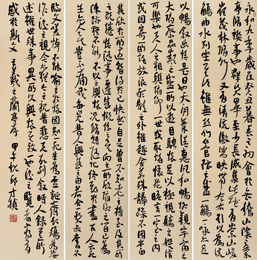 永和九年歲在癸丑暮春之初會于會稽山陰之蘭
亭脩禊事也群賢畢至少長咸集此地有崇山峻
領茂林脩竹又有清流激湍暎帶左右引以為流
觴曲水列坐其次雖無絲竹管弦之盛一觴一詠亦足
以暢敘幽情是日也天朗氣清惠風和暢仰觀宇宙之
大俯察品類之盛所以遊目騁懷足以極視聽之娛信
可樂也夫人之相與俯仰一世或取諸懷抱悟言一室之內
或因寄所託放浪形骸之外雖趣舍萬殊靜躁不同當
其欣於所遇暫得於己快然自足不知老之將至及其所
之既倦情隨事遷感慨係之矣向之所欣俯仰之間已為
陳迹猶不能不以之興懷況脩短隨化終期於盡古人云死
生亦大矣豈不痛哉每覽昔人興感之由若合一契未嘗不
臨文嗟悼不能喻之於懷固知一死生為虛誕齊彭殤為妄
作後之視今亦猶今之視昔悲夫故列敘時人錄其所
述雖世殊事異所以興懷其致一也後之覽者亦將有
感於斯文 之蘭亭序 甲午秋